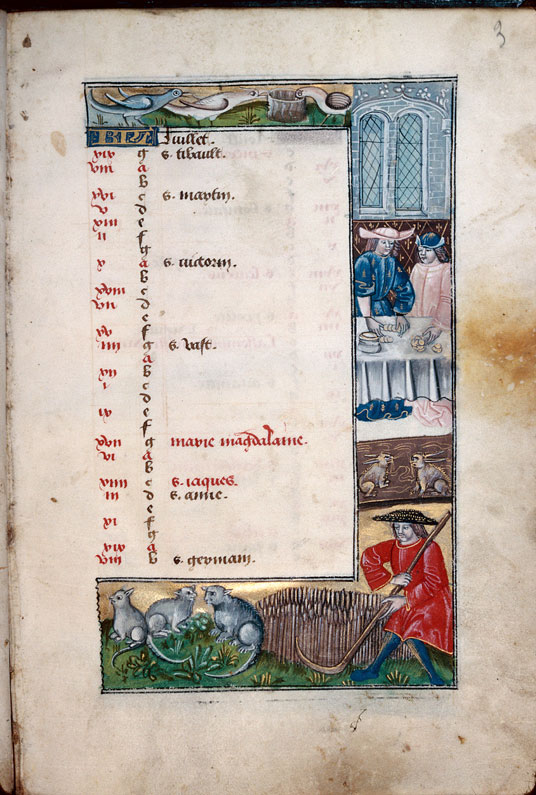 3
Juillet.
xix g s. tibault.
viii a
b
xvi c s. martin.
v d
xiii e
ii f
g
x a s. victorin.
b
xviii c
vii d
e
xv f
iiii g s. vast.
a
xii b
i c
d
ix e
f
xvii g marie magdalaine.
vi a
b
xiiii c s. iaques.
iii d s. anne.
e
xi f
g
xix a
viii b s. germain.